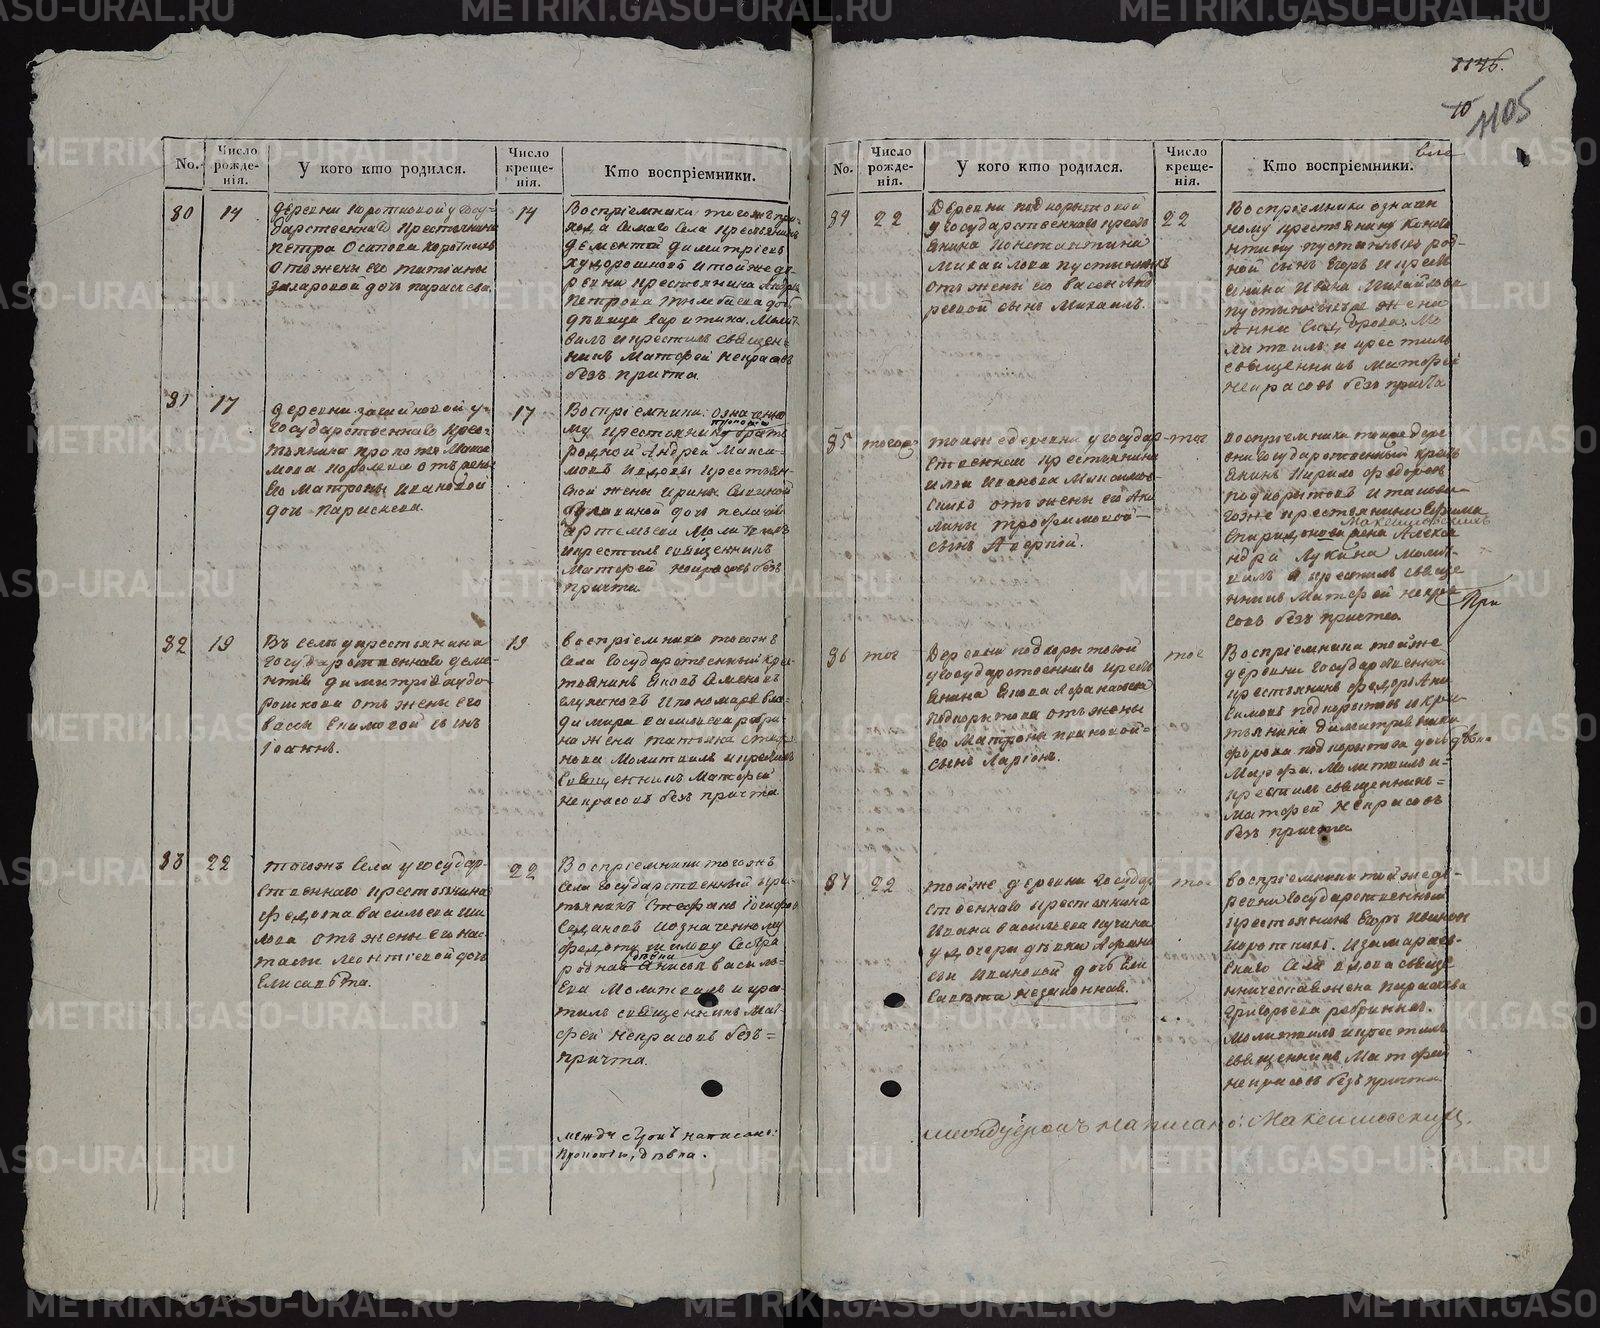 1146.
10
1105
No.
Число рожденія.
У кого кто родился.
Число крещенія.
Кто воспріемники.
80
14
деревни Коротковой у Госу-
дарственнаго крестьянина
Петра Осипова
отъ жены его Татіаны
Захаровой дочь Параскева.
14
Воспріемники: тогожъ при-
хода самаго села крестьянинъ
Дементій Димитріевъ
Худорошковъ и тойже де-
ревни крестьянина Андрея
Петрова дочь
девица Харитина. Молит-
вилъ и крестилъ священ-
никъ Матфей Некрасовъ
безъ причта.
81
17
деревни у
государственнаго крес-
тьянина Прокопья
отъ жены
его Матроны Ивановой
дочь Параскева.
17
Воспріемники: означенно
Прокопію
му крестьянину братъ
родной Андрей Макси-
мовъ и вдовы крестьян-
ской жены Ирины
дочь Пелагія
Артемьева Молитвилъ
и крестилъ священникъ
Матфей Некрасовъ безъ
причта.
82
19
Въ селе у крестьянина
государственнаго Деме-
нтія Димитріева Худо-
рошкова отъ жены его
Вассы Екимовой сынъ
Іоаннъ.
19
Воспріемники тогожъ
села государственный крес-
тьянинъ Яковъ Семеновъ
и пономаря Вла-
димира Васильева
на жена Татьяна Степа-
нова Молитвилъ и крестилъ
священникъ Матфей
Некрасовъ безъ причта
83
22
Тогожъ села у государ-
ственнаго крестьянина
Федота Васильева Ши-
лова отъ жены его Нас-
тасьи Леонтіевой дочь
Елисавета.
22
Воспріемники тогожъ
села государственный крес-
тьянинъ Стефанъ
и означенному
Федоту Шилову сестра
девка
родная Анисья Василь-
ева Молитвилъ и крес-
тилъ священникъ Мат-
фей Некрасовъ безъ
причта.
Между строкъ написано:
Прокопію, девка.
No.
Число рожденія.
У кого кто родился.
Число крещенія.
Кто воспріемники.
84
22
Деревни Подкорытовой
у государственнаго кресть
янина Константина
Михайлова Пустынныхъ
отъ жены его Васси Анд
реевой сынъ Михаилъ.
22
Воспріемники означен
ному крестьянину Конста
нтину Пустынныхъ род-
ной сынъ Егоръ и кресть
янина Ивана Михайлова
Пустынныхъ жена
Анна Мо
литвилъ и крестилъ
священникъ Матфей
Некрасовъ безъ причта
85
тогож
тойже деревни у государ-
ственнаго крестьянина
Ильи Иванова
отъ жены его Аку
лины Трофимовой
сынъ Аверкій.
тог
Воспріемники тойже дере
вни государственный кресть
янинъ Кирило Федоровъ
Подкорытовъ и таково-
гоже крестьянина Ефима
Спиридонова жена Алекса
ндра Лукина Молит-
вилъ и крестилъ свяще
нникъ Матфей Некра
совъ безъ причта.
При
86
тог
Деревни Подкорытовой
у государственнаго кресть
янина Якова Афанасьева
Подкорытова отъ жены
его Матроны Ивановой
сынъ Ларіонъ.
тог
Воспріемники тойже
деревни государственной
крестьянинъ Федоръ Ани
симовъ Подкорытовъ и крес
тьянина Димитрія
Подкорытова дочь девк-
Марфа. Молитвилъ и
крестилъ священникъ
Матфей Некрасовъ
безъ причта
87
22
тойже деревни государ
ственнаго крестьянина
Ивана Васильева
у дочери девки
Ивановой дочь Ели
савета незаконная.
тог
Воспріемники тойже де-
ревни государственный
крестьянинъ Егоръ Ивановъ
и
села вдова свяще
нническая жена Параскева
Григорьева
Молитвилъ и крестилъ
священникъ Матфей
Некрасовъ безъ причта
Между строкъ написано: Максимовскихъ.